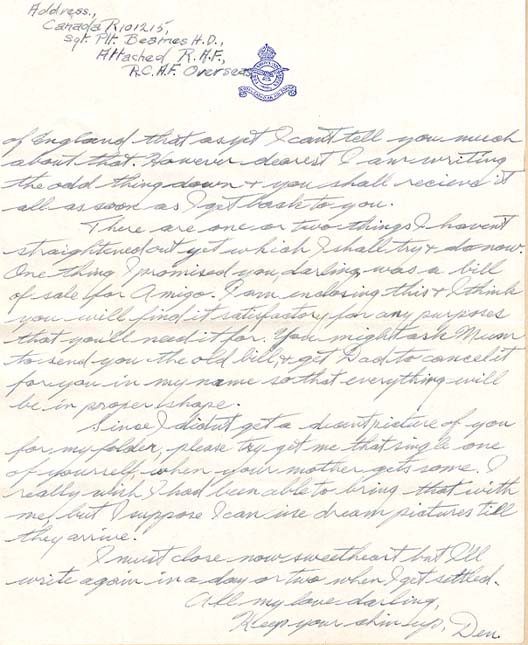 Address.,
Canada R101215,
Sgt. Plt. Beames H.D.,
Attached R.A.F.,
R.C.A.F. Overseas
of England that as yet I can't tell you much
about that. However dearest I am writing
the odd thing down + you shall recieve it
all as soon as I get back to you.
There are one or two things I haven't
straightened out yet which I shall try + do now.
One thing I promised you, darling, was a bill
of sale for Amigo. I am enclosing this + I think
you will find it satisfactory for any purposes
that you'll need it for. You might ask Mum
to send you the old bill, + get Dad to cancel it
for you in my name so that everything will
be in proper shape.
Since I didn't get a decent picture of you
for my folder, please try get me that single one
of yourself, when your mother gets some. I
really wish I had been able to bring that with
me, but I suppose I can use dream pictures till
they arrive.
I must close now sweetheart but I'll
write again in a day or two when I get settled.
All my love darling,
Keep your chin up, Den.